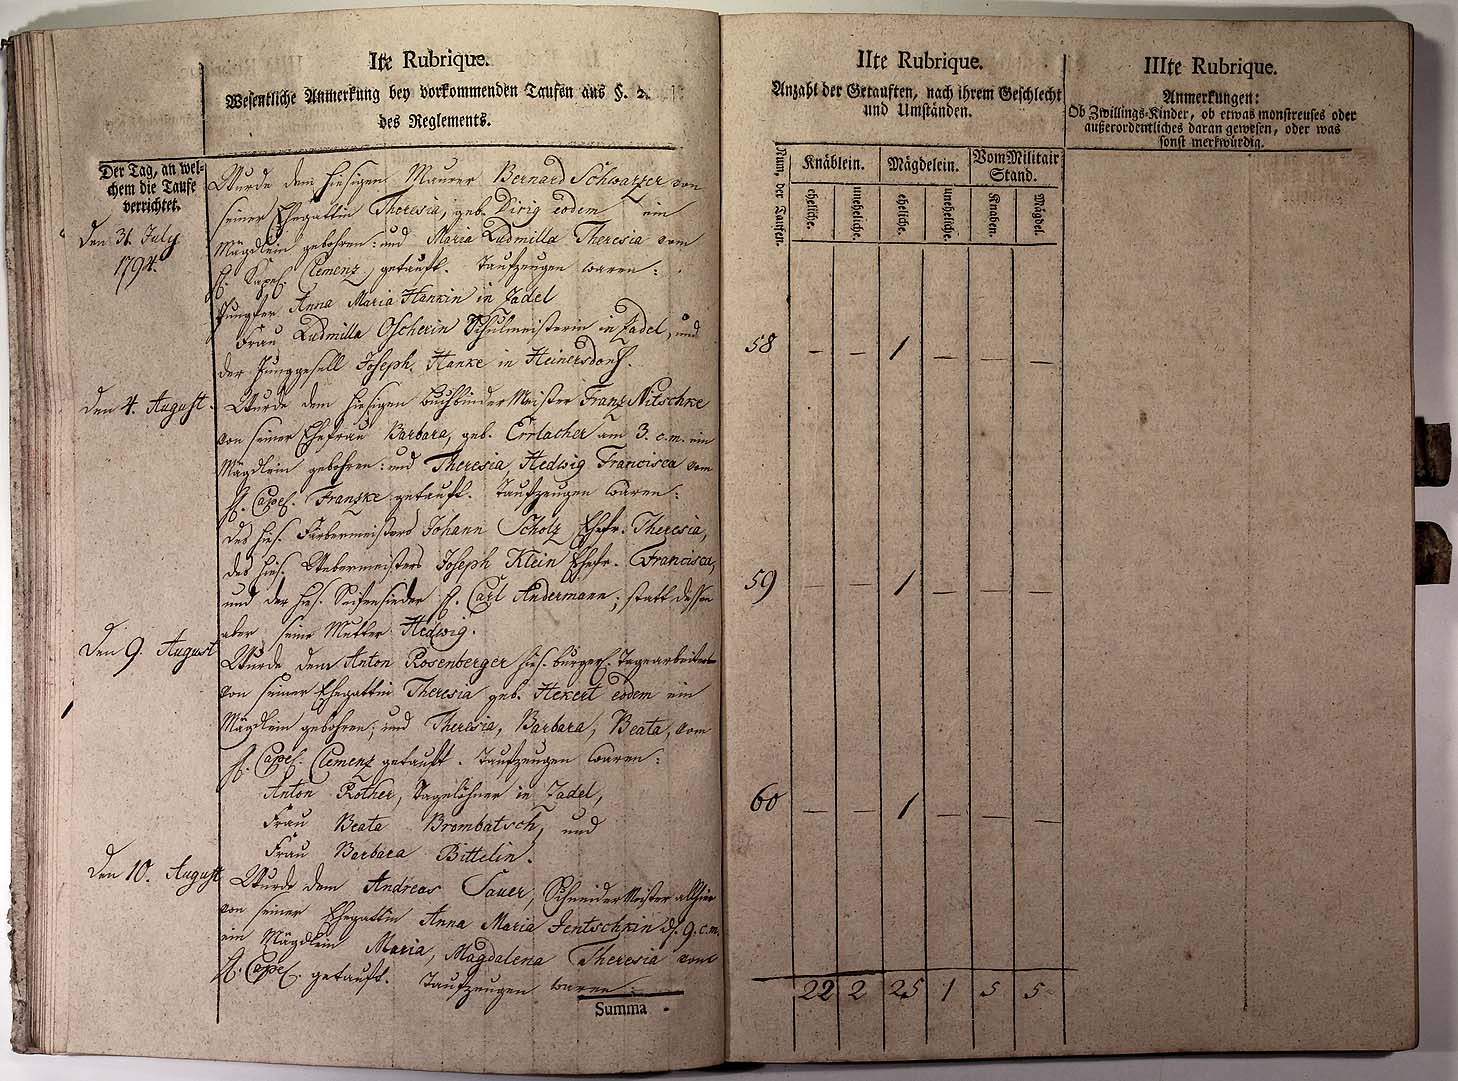 Ite Rubrique.
Wesentliche Anmerkung bey vorkommenden Taufen aus §. 2.
des Reglements.
Der Tag, an wel-
chem die Taufe
verrichtet.
Den 31. July
1794.
Wurde dem hiesigen Maurer Bernard Schwarzer von
seiner Ehegattin Theresia, geb. Pirig eodem ein
Mägdlein gebohren: und Maria Ludmilla Theresia vom
H. Capel. Clemenz getauft. Taufzeugen waren:
Jungfer Anna Maria Hankin in Zadel
Frau Ludmilla Oscherin Schulmeisterin in Zadel, und
der Junggesell Joseph Hanke in Heinersdorf.
Den 4. August.
Wurde dem hiesigen Buchbinder Meister Franz Nitschke
von seiner Ehefrau Barbara, geb. Errlacher am 3. c.m. ein
Mägdlein gebohren: und Theresia, Hedwig Francisca vom
H. Capel. Franzke getauft. Taufzeugen waren:
des hies. Färbermeisters Johann Scholz Ehefr. Theresia,
des hies. Webermeisters Joseph Klein Ehefr. Francisca,
und der hies. Seifensieder H. Carl Andermann; statt dessen
aber seine Mutter Hedwig.
Den 9. August
Wurde dem Anton Rosenberger hies. bürgerl. Tagearbeiter
von seiner Ehegattin Theresia geb. Hekert eodem ein
Mägdlein gebohren; und Theresia, Barbara, Beata, vom
H. Capel. Clemenz getauft. Taufzeugen waren:
Anton Rother, Tagelöhner in Zadel,
Frau Beata Brombatsch, und
Frau Barbara Bittelin.
Den 10. August
Wurde dem Andreas Sauer, Schneider Meister allhier
von seiner Ehegattin Anna Maria Jentschkin d. 9. c.m.
ein Mägdlein Maria, Magdalena Theresia vom
H. Capel. getauft. Taufzeugen waren:
Summa
IIte Rubrique.
Anzahl der Getauften, nach ihrem Geschlecht
und Umständen.
Num. der Taufen.
Knäblein. Mägdelein. Vom Militair
Stand.
eheliche. uneheliche. eheliche. uneheliche. Knaben. Mägdel.
58 — — 1 — — —
59 — — 1 — — —
60 — — 1 — — —
22 2 25 1 5 5
IIIte Rubrique.
Anmerkungen:
Ob Zwillings-Kinder, ob etwas monstreuses oder
außerordentliches daran gewesen, oder was
sonst merkwürdig.